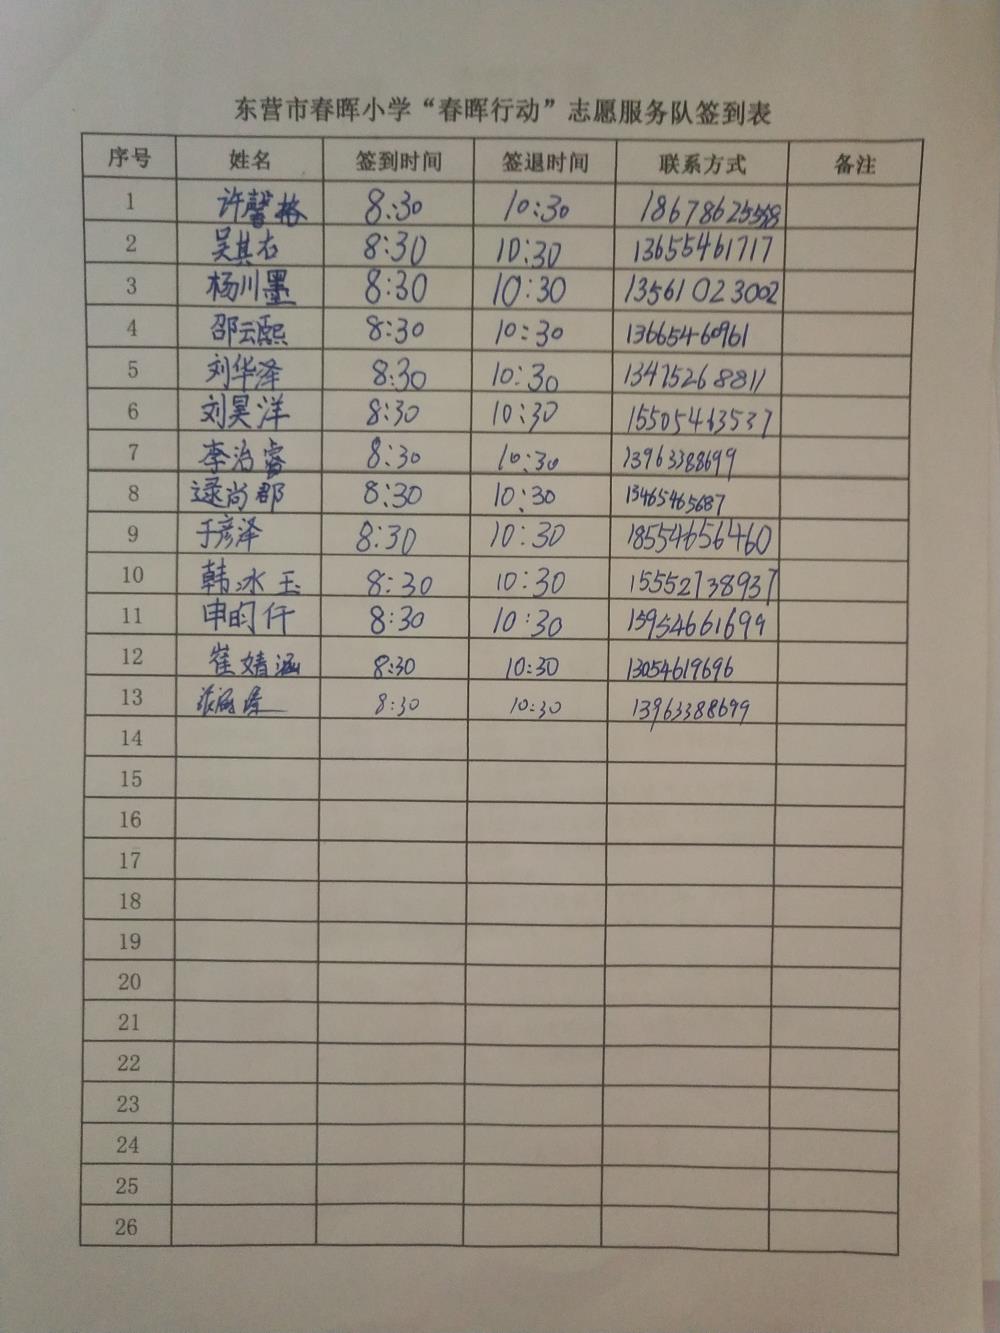 东营市春晖小学“春晖行动”志愿服务队签到表
序号 姓名 签到时间 签退时间 联系方式 备注
1 许馨格 8:30 10:30
2 吴其右 8:30 10:30 13655461717
3 杨川墨 8:30 10:30 13561023002
4 邵云熙 8:30 10:30 13665460961
5 刘华泽 8:30 10:30 13475268811
6 刘昊洋 8:30 10:30 15505463537
7 李治睿 8:30 10:30 13963388699
8 逯尚郡 8:30 10:30 13465465687
9 于彦泽 8:30 10:30 18554656460
10 韩冰玉 8:30 10:30 15552738937
11 申昀仟 8:30 10:30 15954661699
12 崔婧涵 8:30 10:30 13054619696
13 8:30 10:30 13963388699
14
15
16
17
18
19
20
21
22
23
24
25
26